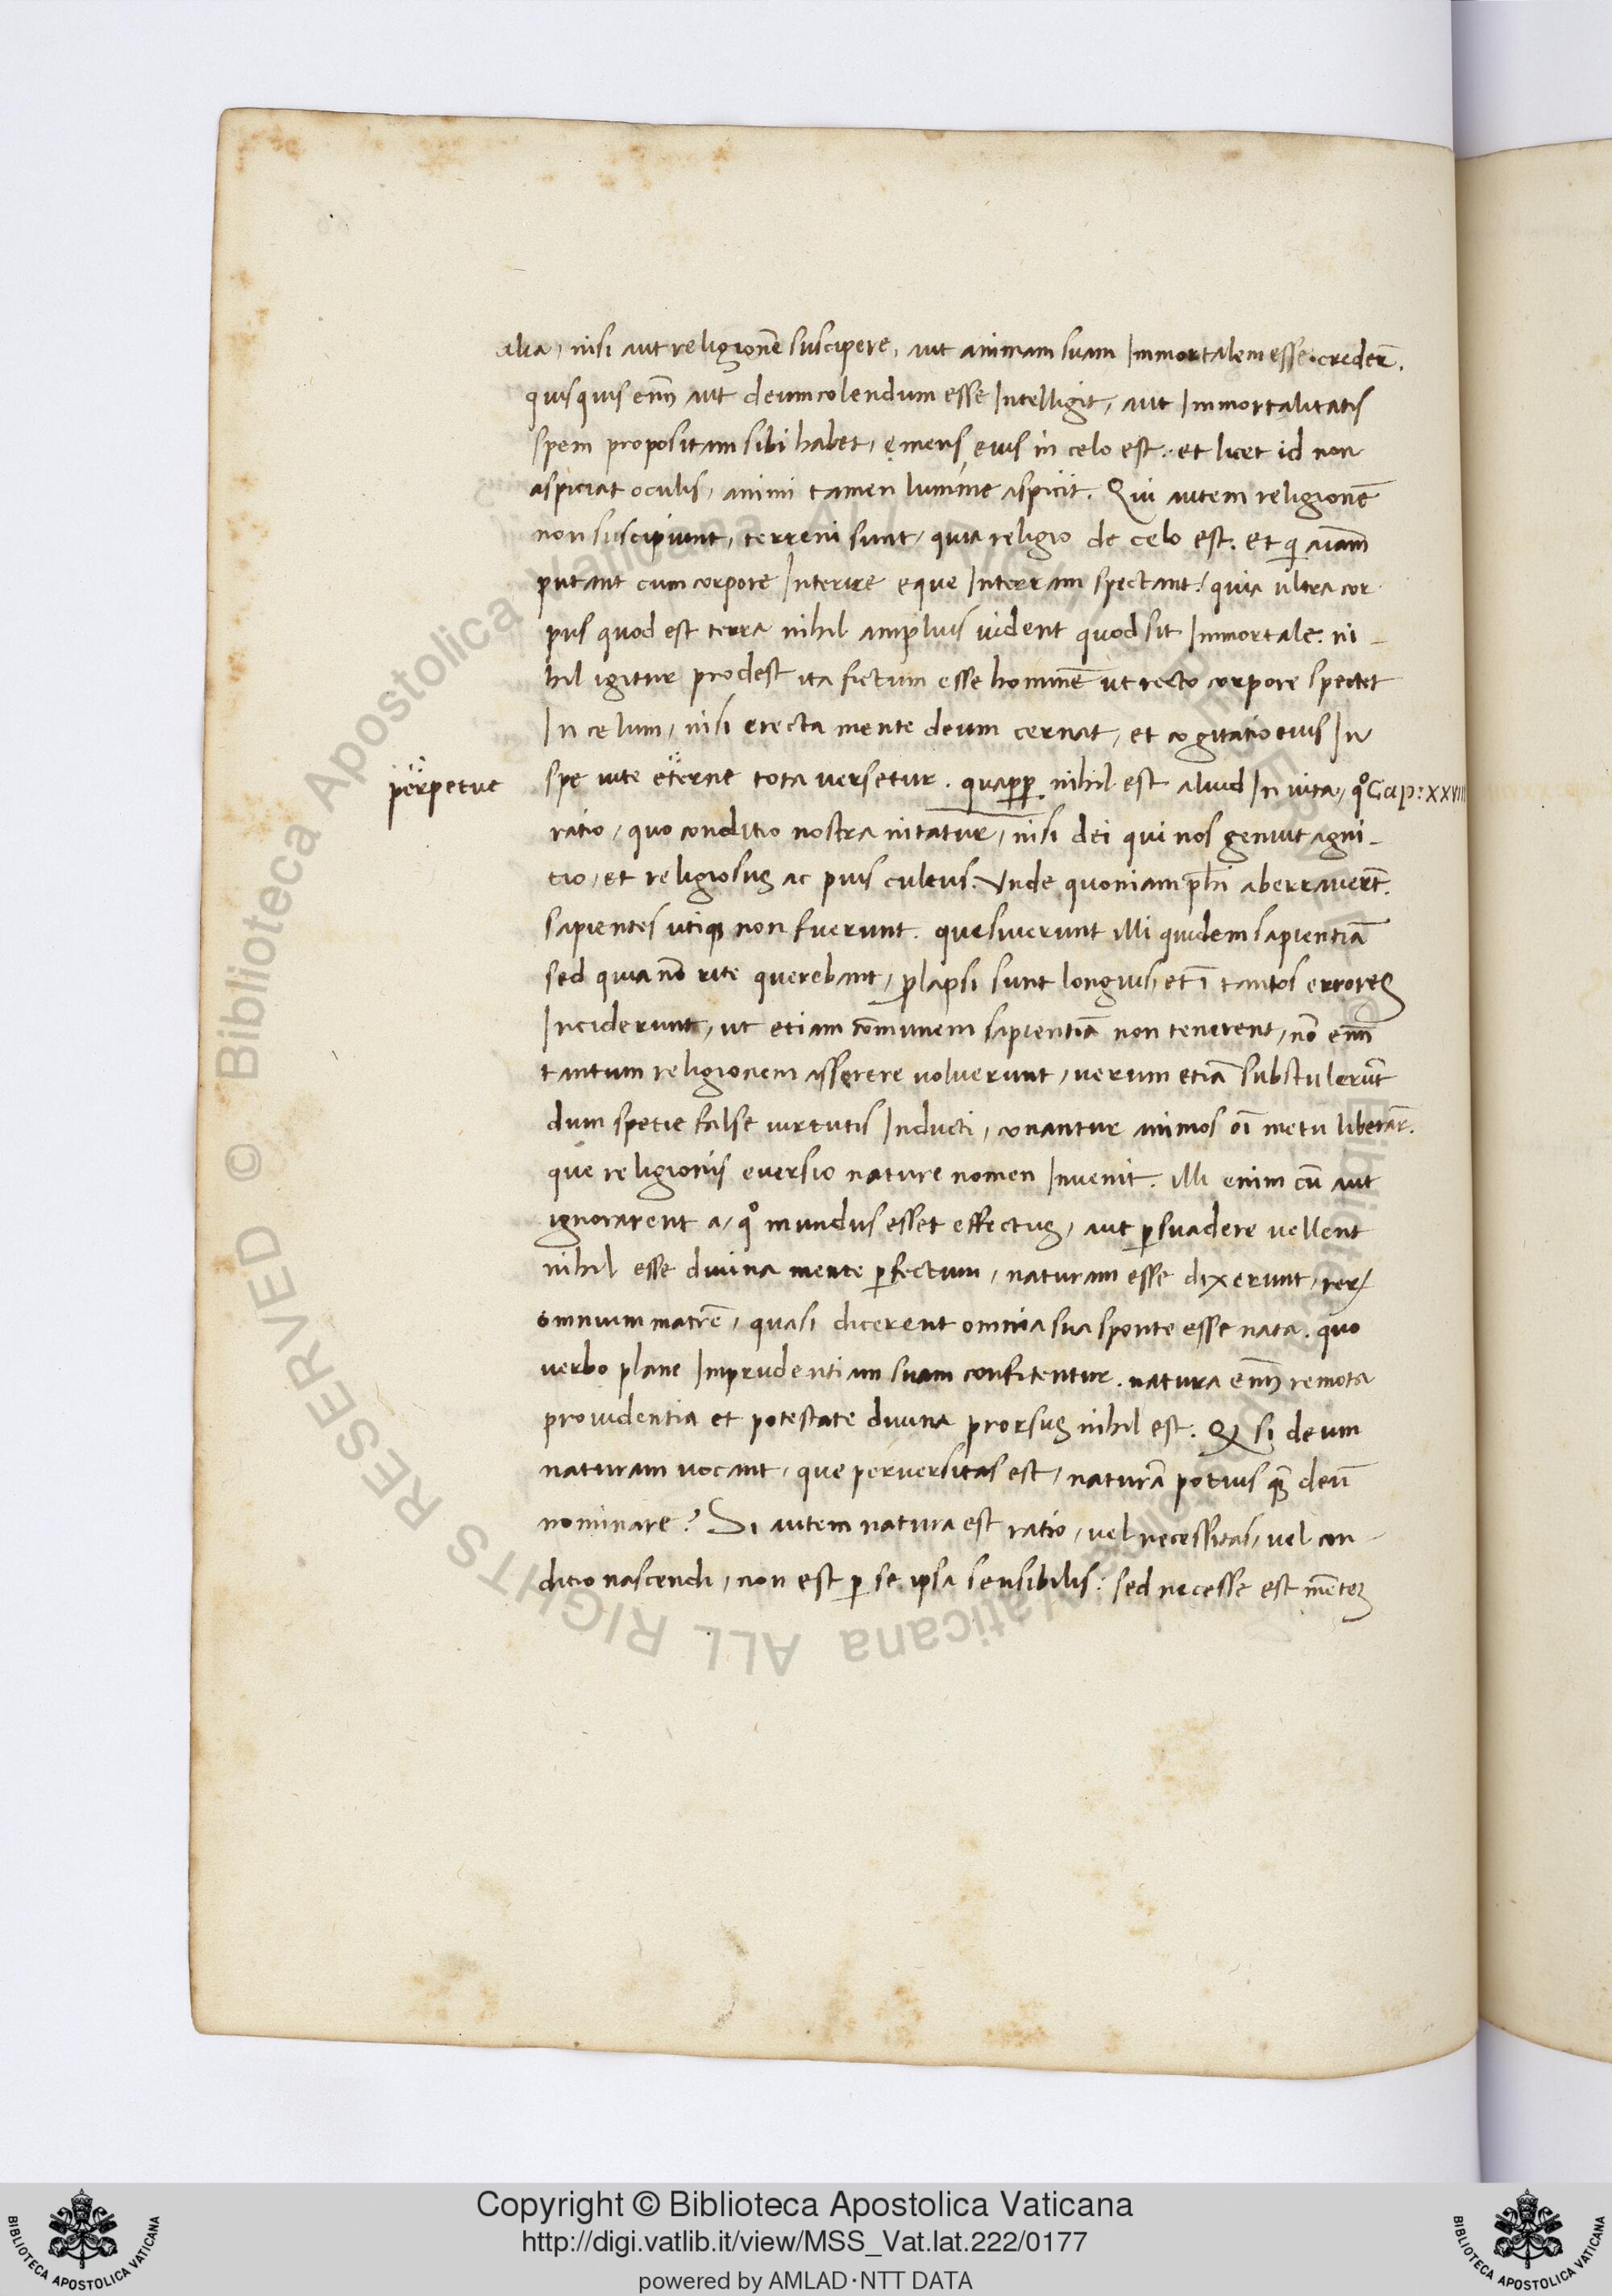 alia, nisi aut religionē suscipere, aut animam suam Immortalem esse crederē.
quisquis enī aut deum colendum esse Intelligit, aut Immortalitatis
spem propositam sibi habet, emens eius in celo est. et licet id non
aspiciat oculis, animi tamen lumine aspicit. Qui autem religionē
non suscipiunt, terreni sunt, quia religio de celo est. et q̄ aīam
putant cum corpore Interire eque In terram spectant. quia ultra cor
pus quod est terra nihil amplius vident quod sit Immortale. ni-
hil igitur prodest ita fictum esse hominē ut recto corpore spectet
In celum, nisi erecta mente deum cernat, et cogitatio eius In
perpetue
spe vite eterne tota versetur. quapp̄ nihil est aliud In vita, qͦ Cap: XXVIII
ratio, quo conditio nostra nitatur, nisi dei qui nos genuit agni-
tio, et religiosus ac pius cultus. Unde quoniam pħi aberraverūt.
sapientes utiqꝫ non fuerunt. quesiverunt illi quidem sapientiā
sed quia nō rite querebant, ꝓlapsi sunt longius, et ī tantos errores
Inciderunt, ut etiam cōmunem sapientiā non tenerent, nō enī
tantum religionem asserere voluerunt, verum etiā substulerūt
dum spetie false virtutis Inducti, conantur animos oī metu liberār̄.
que religionis eversio nature nomen Invenit. illi enim cū aut
ignorarent a, qͦ mundus esset effectus, aut ꝑsuadere vellent
nihil esse divina mente ꝑfectum, naturam esse dixerunt, reꝝ
omnium matrē, quasi dicerent omnia sua sponte esse nata. quo
verbo plane Imprudentiam suam confitentur. natura enī remota
providentia et potestate divina prorsus nihil est. Qꝫ si deum
naturam vocant, que perversitas est, naturā potius qꝫ̄ deū
nominare? Si autem natura est ratio, vel necessitas, vel con-
ditio nascendi, non est ꝑ se ipsa sensibilis: sed necesse est mēteꝫ
© Biblioteca Apostolica Vaticana ALL RIGHTS RESERVED
Copyright © Biblioteca Apostolica Vaticana
http://digi.vatlib.it/view/MSS_Vat.lat.222/0177
powered by AMLAD·NTT DATA
BIBLIOTECA APOSTOLICA VATICANA
BIBLIOTECA APOSTOLICA VATICANA